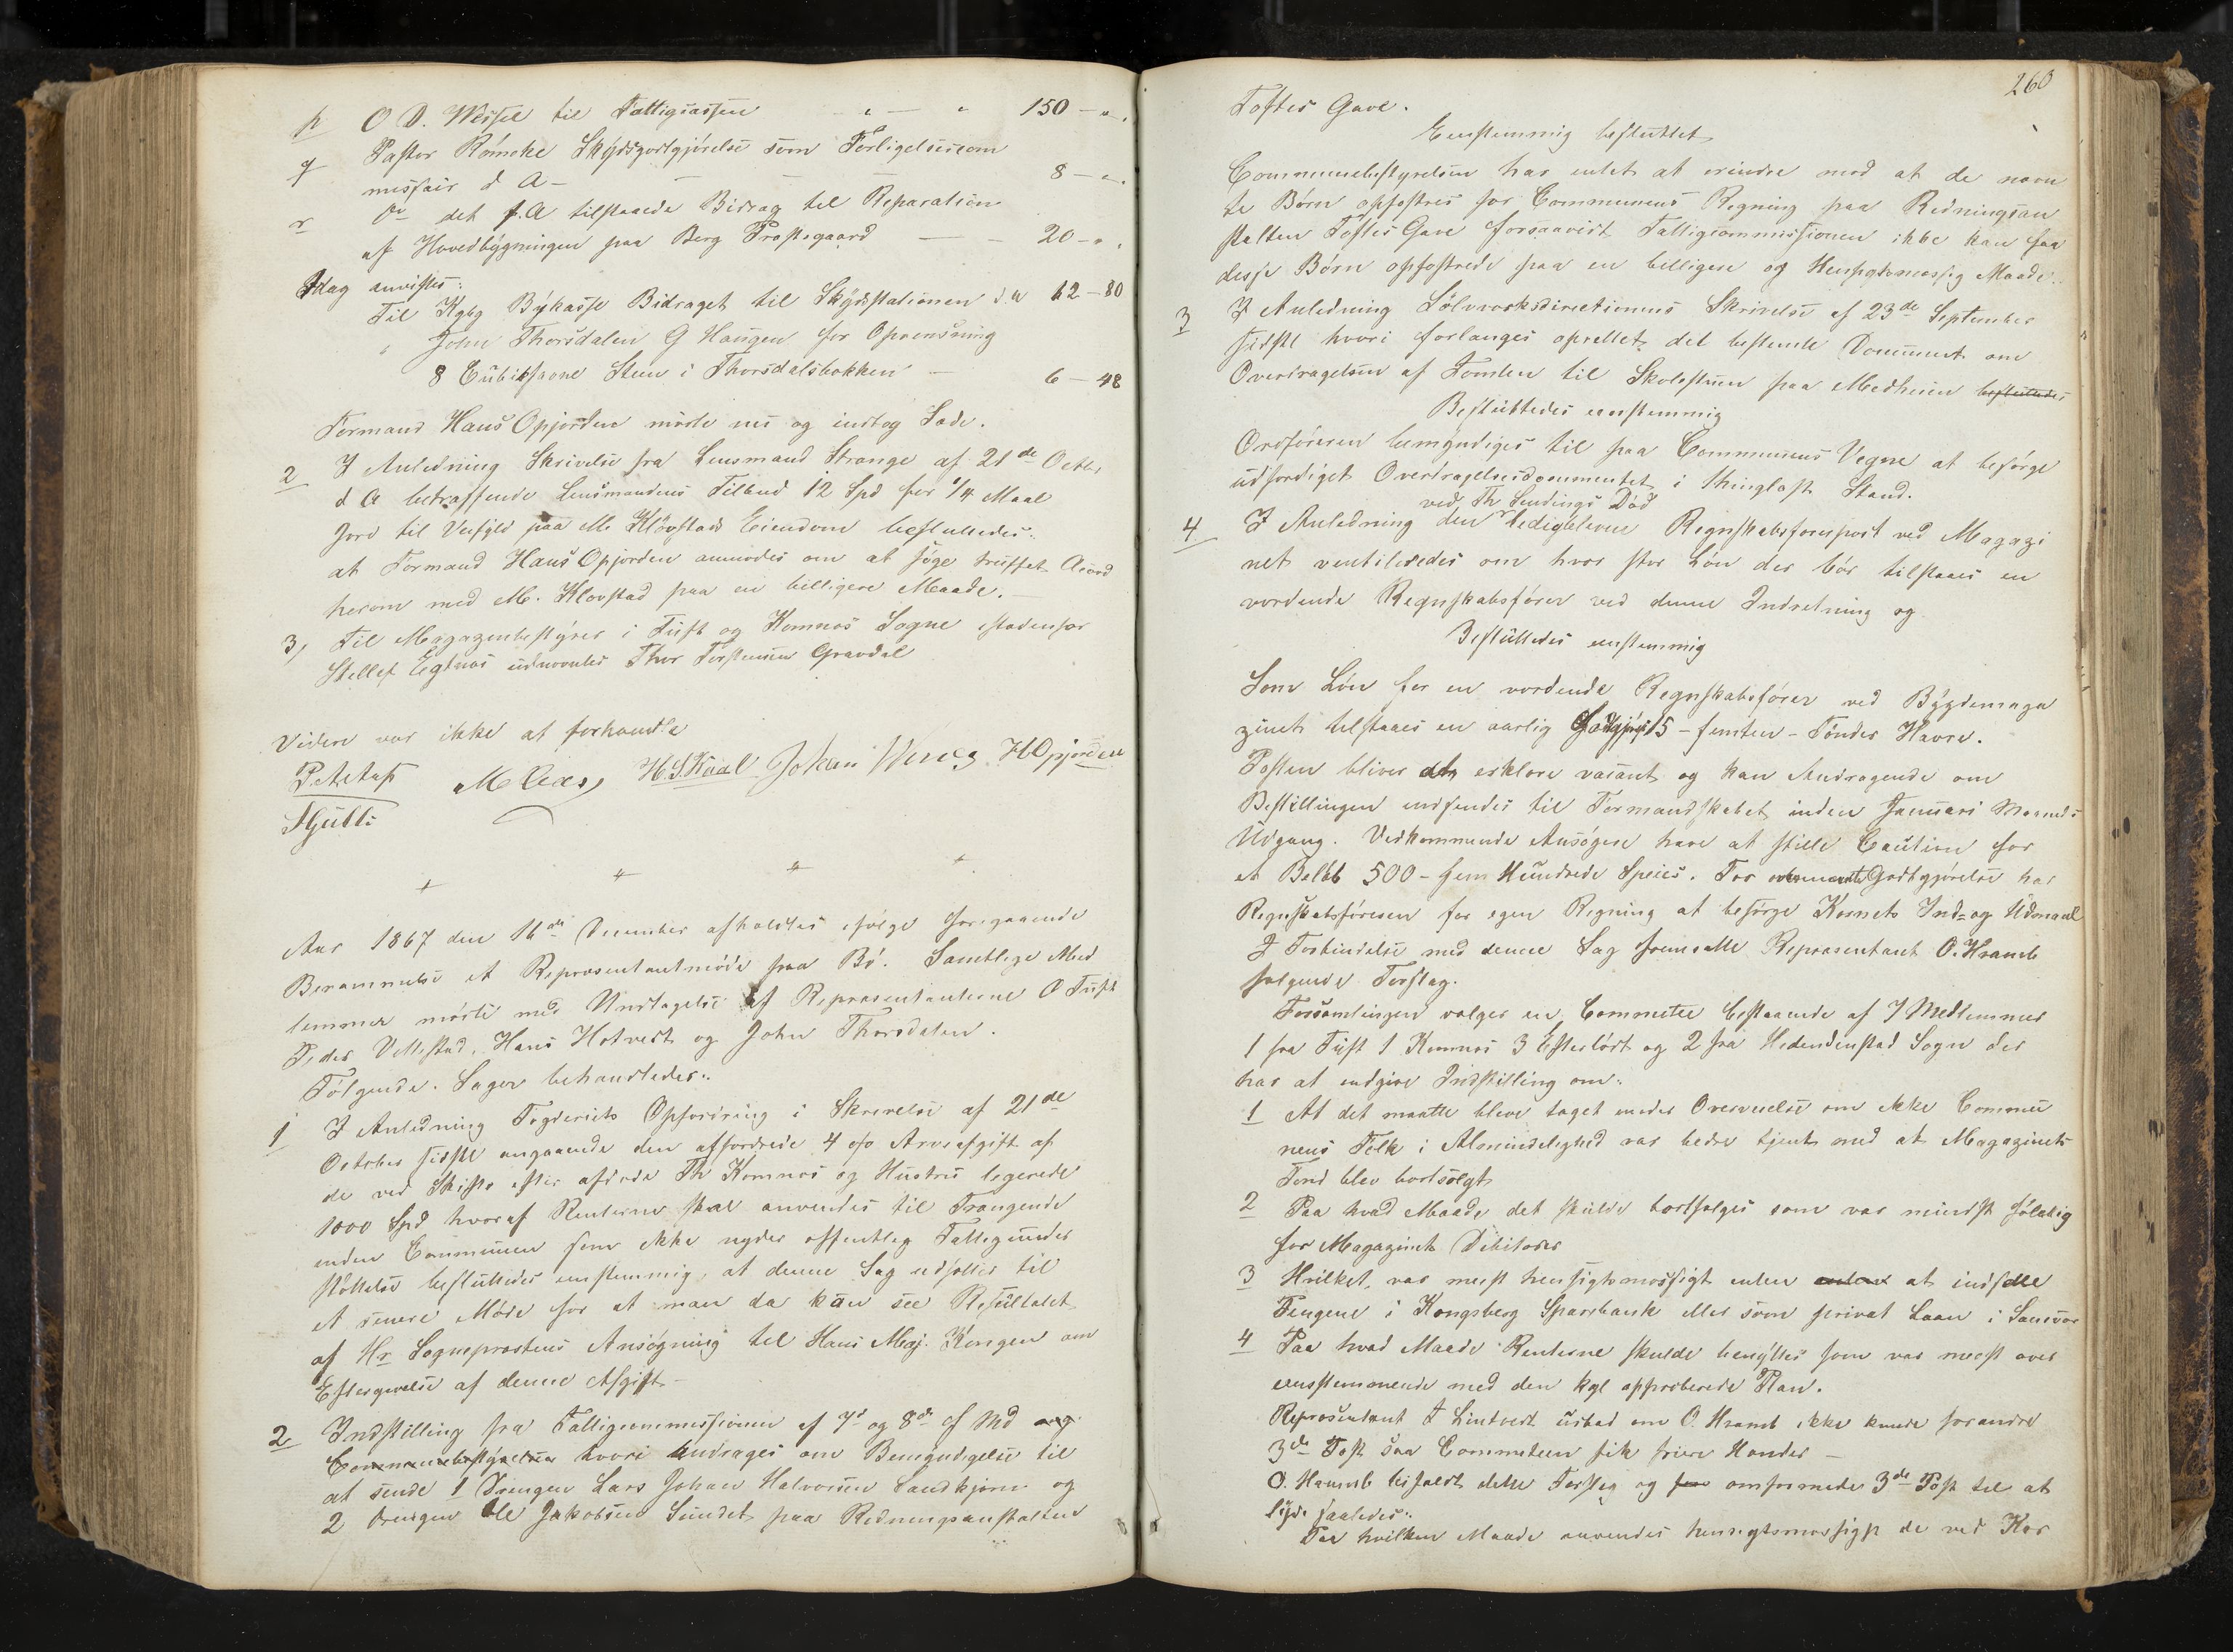 p O D. Wessel til Fattigcassen " — " 150 — ".
q Pastor Römcke Skydsgodtgjörelse som Forligelsescom
missair d A — — — — 8 — ".
r Do det f. A tilstaaede Bidrag til Reparation
af Hovedbygningen paa Berg Præstegaard — — 20 — ".
Idag anvistes:
Til Kgbg Bykasse Bidraget til Skydsstationen d. A 62 — 80
" John Thorsdalen G Haugen for Oprensning
8 Cubikfavne Steen i Thorsdalsbækken — 6 — 48
Formand Hans Opjorden mödte nu og indtog Sæde.
2 I Anledning Skrivelse fra Lensmand Strange af 21de Octbr
d A betræffende Lensmandens Tilbud 12 Spd for 1/4 Maal
Jord til Veifyld paa M. Klövstads Eiendom besluttedes:
at Formand Hans Opjorden anmodes om at söge truffet Acord
herom med M. Klovstad paa en billigere Maade. —
3, Til Magazinbestyrer i Tuft og Komnæs Sogne istedenfor
Stellef Egtnæs udnævntes Thor Torstensen Gravdal
Videre var ikke at forhandle
H. S. Kaal Johan Wercg HOpjorden
Aar 1867 den 16de December afholdtes ifölge foregaaende
Berammelse et Repræsentantmöde paa Bö. Samtlige Med
lemmer mödte med Undtagelse af Repræsentanterne O Tuft
Peder Vellestad, Hans Hotvedt og John Thorsdalen.
Fölgende Sager behandledes:
1 I Anledning Fogderiets Opfordring i Skrivelse af 21de
October sidstl angaaende den affordrede 4 o/o Arveafgift af
de ved Skifte efter afdöde Th Komnæs og Hustru legerede
1000 Spd hvoraf Renterne skal anvendes til Trængende
inden Communen som ikke nyder offentlig Fattigunder
stöttelse besluttedes eenstemmig, at denne Sag udsættes til
et senere Möde for at man da kan see Resultatet
af Hr Sogneprestens Ansögning til Hans Maj. Kongen om
Eftergivelse af denne Afgift —
2 Indstilling fra Fattigcommissionen af 7d og 8de df Md ang
Communebestyrelsen hvori andrages om Bemyndigelse til
at sende 1 Drengen Lars Johan Halvorsen Sandkjern og
2 Drengen Ole Jakobsen Sundet paa Redningsanstalten
263
Toftes Gave.
Eenstemmig besluttet
Communebestyrelsen har intet at erindre mod at de nævn
te Börn opfostres for Communens Regning paa Redningsan
stalten Toftes Gave forsaavidt Fattigcommissionen ikke kan faa
disse Börn opfostrede paa en billigere og Hensigtsmæssig Maade.
3 I Anledning Sölvværksdirectionens Skrivelse af 23de September
sidstl hvori forlanges oprettet det bestemte Document om
Overdragelsen af Tomten til Skolestuen paa Medheien besluttedes
Besluttedes eenstemmig
Ordföreren bemyndiges til paa Communens Vegne at besörge
udfærdiget Overdragelsesdocumentet i thinglæst Stand.
ved Th Lundings Död
4 I Anledning den ledigblevne Regnskabsförerpost ved Magazi
net ventileredes om hvor stor Lön der bör tilstaaes en
vordende Regnskabsförer ved denne Indretning og
Besluttedes eenstemmig
Som Lön for en vordende Regnskabsförer ved Bygdemaga
zinet tilstaaes en aarlig Godtgjör. 15 — femten — Tönder Havre.
Posten bliver at erklære vacant og kan Andragende om
Bestillingen indsendes til Formandskabet inden Januari Maaneds
Udgang. Vedkommende Ansögere have at stille Caution for
et Belöb 500 — fem Hundrede Species. For ovennævnte Godtgjörelse har
Regnskabsföreren for egen Regning at besörge Kornets Ind- og Udmaal
I Forbindelse med denne Sag fremsatte Repræsentant O. Hramb
fölgende Forslag.
Forsamlingen vælger en Committee bestaaende af 7 Medlemmer
1 fra Tuft 1 Komnæs 3 Efterlöst og 2 fra Hedenstad Sogn der
har at indgive Indstilling om:
1 At det maatte blive taget under Overveielse om ikke Commu
nens Folk i Almindelighed var bedre tjent med at Magazinets
Fond blev bortsolgt
2 Paa hvad Maade det skulde bortsælges som var mindst fölelig
for Magazinets Debitorer
3 Hvilket var meest hensigtsmæssigt enten enten at indsætte
Pengene i Kongsberg Sparebank eller som privat Laan i Sandsvær
4 Paa hvad Maade Renterne skulde benyttes som var meest over
eensstemmende med den kgl approberede Plan.
Repræsentant T Lindvedt udbad om O. Hramb ikke kunde forandre
3de Post saa Committeen fik friere Hænder —
O. Hramb bifaldt dette Forslag og for omformede 3de Post til at
lyde saaledes:
Paa hvilken Maade anvendes hensigtsmæssigst de ved Kor